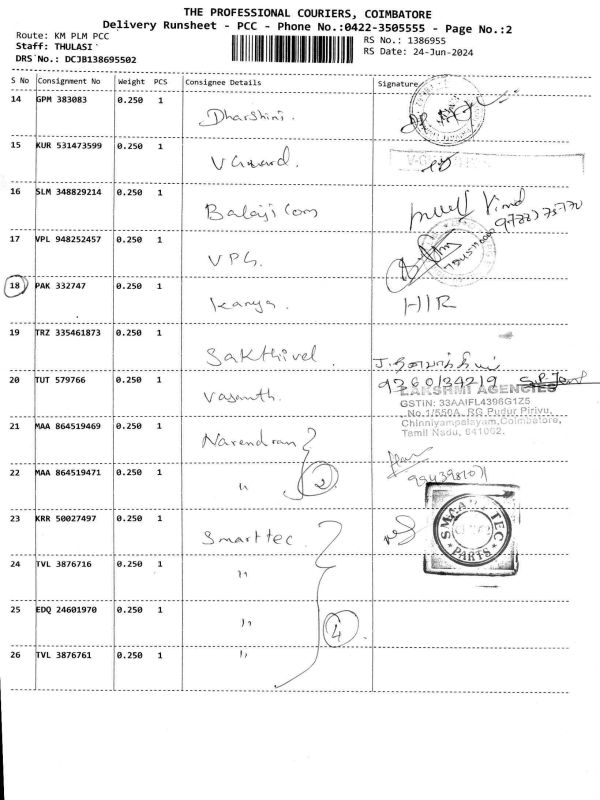 THE PROFESSIONAL COURIERS, COIMBATORE
Delivery Runsheet - PCC - Phone No.:0422-3505555 - Page No.:2
Route: KM PLM PCC
Staff: THULASI
DRS No.: DCJB138695502
RS No.: 1386955
RS Date: 24-Jun-2024
S No Consignment No Weight PCS Consignee Details Signature
14 GPM 383083 0.250 1 Dharshini.
15 KUR 531473599 0.250 1 V Guard.
16 SLM 348829214 0.250 1 Balaji Com
17 VPL 948252457 0.250 1 VPG.
18 PAK 332747 0.250 1 Kanya. HIR
19 TRZ 335461873 0.250 1 Sakthivel
20 TUT 579766 0.250 1 Vasanth.
9360134219
LAKSHMI AGENCIES
GSTIN: 33AAIFL4396G1Z5
No.1/550A, RG Pudur Pirivu,
Chinniyampalayam, Coimbatore,
Tamil Nadu, 641062.
21 MAA 864519469 0.250 1 Narendran
22 MAA 864519471 0.250 1 " 2
23 KRR 50027497 0.250 1 Smart tec
SMAART TEC
PARTS
24 TVL 3876716 0.250 1 "
25 EDQ 24601970 0.250 1 " 4
26 TVL 3876761 0.250 1 "